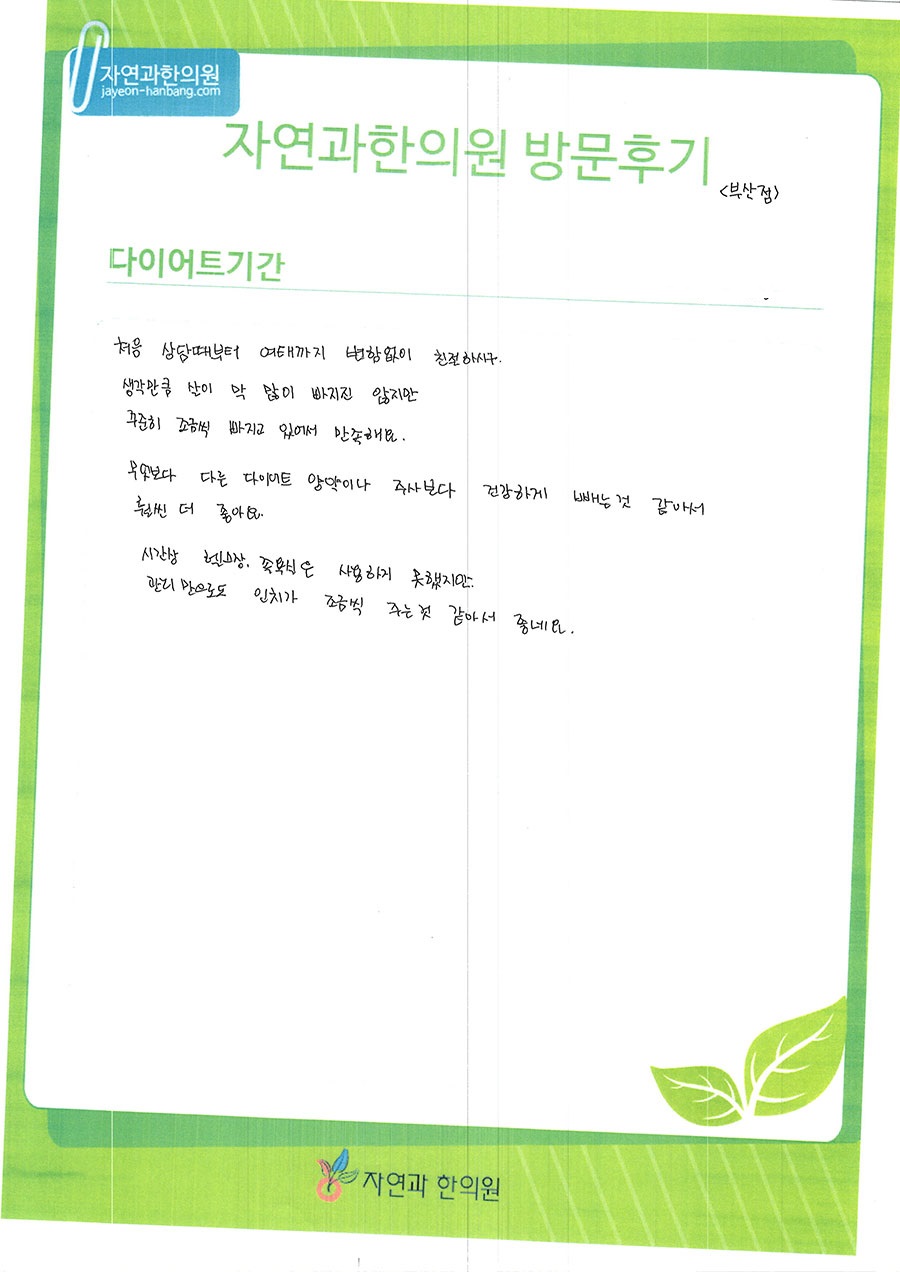 자연과한의원
jayeon-hanbang.com
자연과한의원 방문후기
<부산점>
다이어트기간
처음 상담때부터 여태까지 변함없이 친절하시구.
생각만큼 살이 막 많이 빠지진 않지만
꾸준히 조금씩 빠지고 있어서 만족해요.
무엇보다 다른 다이어트 양약이나 주사보다 건강하게 빼는것 같아서
훨씬 더 좋아요.
시간상 헬스장, 족욕식은 사용하지 못했지만.
관리 만으로도 인치가 조금씩 주는것 같아서 좋네요.
자연과 한의원